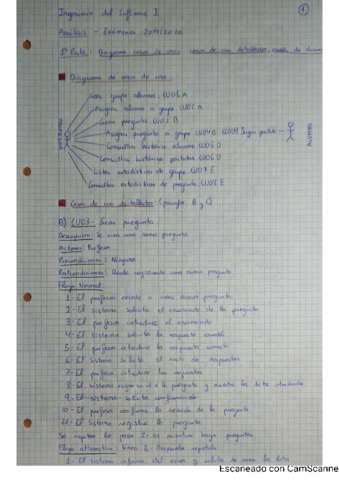 Ingeniería del Software I
1
Análisis - Exámenes 2019/2020
1ª Parte: Diagrama casos de uso, casos de uso detallados, modelo de dominio
Diagrama de casos de uso:
Crear grupo alumnos CU01 A
Asignar alumno a grupo CU02 A
Crear pregunta CU03 B
Asignar pregunta a grupo CU04 B CU09 Jugar partida
Consultar histórico alumno CU05 D
Consultar histórico partidas CU06 D
Listar estadísticas de grupo CU07 E
Consultar estadísticas de pregunta CU08 E
PROFESOR
ALUMNO
Casos de uso detallados: (B y C)
B) CU03 - Crear pregunta
Descripción: Se crea una nueva pregunta
Actores: Profesor
Precondiciones: Ninguna
Postcondiciones: Queda registrada una nueva pregunta
Flujo Normal:
1.- El profesor accede a crear nueva pregunta
2.- El sistema solicita el enunciado de la pregunta
3.- El profesor introduce el enunciado
4.- El sistema solicita la respuesta correcta
5.- El profesor introduce la respuesta correcta
6.- El Sistema solicita el resto de respuestas
7.- El profesor introduce las respuestas
8.- El sistema asigna un id a la pregunta y muestra los datos introducidos
9.- El sistema solicita confirmación
10.- El profesor confirma la creación de la pregunta
11.- El Sistema registra la pregunta
Se repiten los pasos 2- mientras haya preguntas
Flujo alternativo: Línea 6- Respuesta repetida
1.- El sistema informa del error y solicita de nuevo los datos
Escaneado con CamScanner